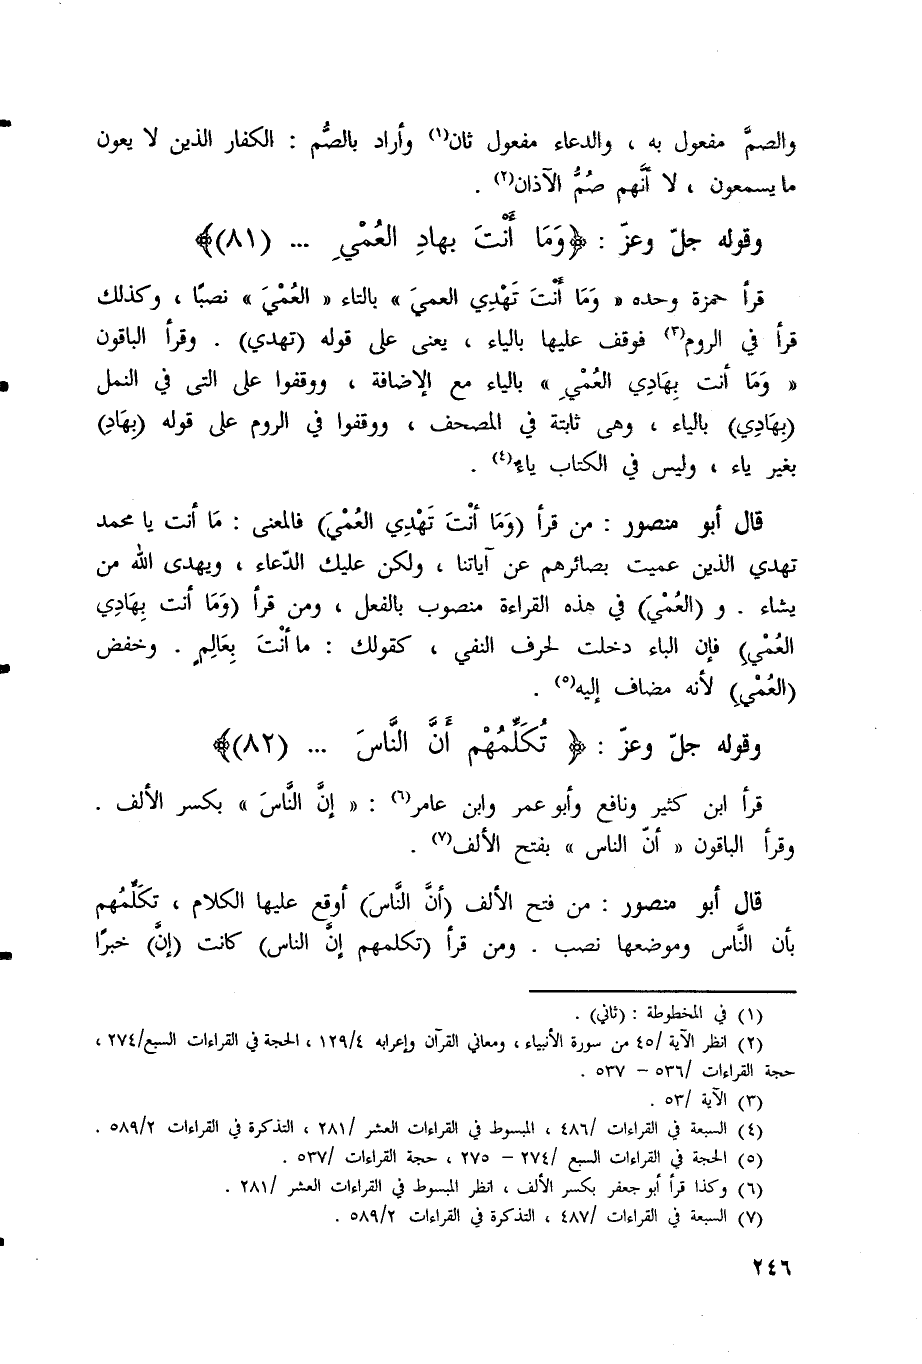 والصمَّ مفعول به ، والدعاء مفعول ثان(١) وأراد بالصُّم : الكفار الذين لا يعون
ما يسمعون ، لا أنَّهم صُمُّ الآذان(٢) .
وقوله جلّ وعزّ : ﴿وَمَا أَنْتَ بهادِ العُمْيِ ... (٨١)﴾
قرأ حمزة وحده « وَمَا أَنْتَ تَهْدِي العميَ » بالتاء « العُمْيَ » نصبًا ، وكذلك
قرأ في الروم(٣) فوقف عليها بالياء ، يعنى على قوله (تهدي) . وقرأ الباقون
« وَمَا أنت بِهَادِي العُمْيِ » بالياء مع الإضافة ، ووقفوا على التى في النمل
(بِهَادِي) بالياء ، وهى ثابتة في المصحف ، ووقفوا في الروم على قوله (بِهَادِ)
بغير ياء ، وليس في الكتاب ياء(٤) .
قال أبو منصور : من قرأ (وَمَا أَنْتَ تَهْدِي العُمْيَ) فالمعنى : مَا أنت يا محمد
تهدي الذين عميت بصائرهم عن آياتنا ، ولكن عليك الدّعاء ، ويهدى الله من
يشاء . و (العُمْيَ) في هذه القراءة منصوب بالفعل ، ومن قرأ (وَمَا أنت بِهَادِي
العُمْيِ) فإن الباء دخلت لحرف النفي ، كقولك : ما أنْتَ بِعَالِمٍ . وخفض
(العُمْيِ) لأنه مضاف إليه(٥) .
وقوله جلّ وعزّ : ﴿ تُكَلِّمُهُمْ أَنَّ النَّاسَ ... (٨٢)﴾
قرأ ابن كثير ونافع وأبو عمر وابن عامر(٦) : « إنَّ النَّاسَ » بكسر الألف .
وقرأ الباقون « أنّ الناس » بفتح الألف(٧) .
قال أبو منصور : من فتح الألف (أنَّ النَّاسَ) أوقع عليها الكلام ، تكلِّمُهم
بأن النَّاس وموضعها نصب . ومن قرأ (تكلمهم إنَّ الناس) كانت (إنَّ) خبرًا
(١) في المخطوطة : (ثاني) .
(٢) انظر الآية /٤٥ من سورة الأنبياء ، ومعاني القرآن وإعرابه ١٢٩/٤ ، الحجة في القراءات السبع/٢٧٤ ،
حجة القراءات /٥٣٦ – ٥٣٧ .
(٣) الآية /٥٣ .
(٤) السبعة في القراءات /٤٨٦ ، المبسوط في القراءات العشر /٢٨١ ، التذكرة في القراءات ٥٨٩/٢ .
(٥) الحجة في القراءات السبع /٢٧٤ – ٢٧٥ ، حجة القراءات /٥٣٧ .
(٦) وكذا قرأ أبو جعفر بكسر الألف ، انظر المبسوط في القراءات العشر /٢٨١ .
(٧) السبعة في القراءات /٤٨٧ ، التذكرة في القراءات ٥٨٩/٢ .
٢٤٦